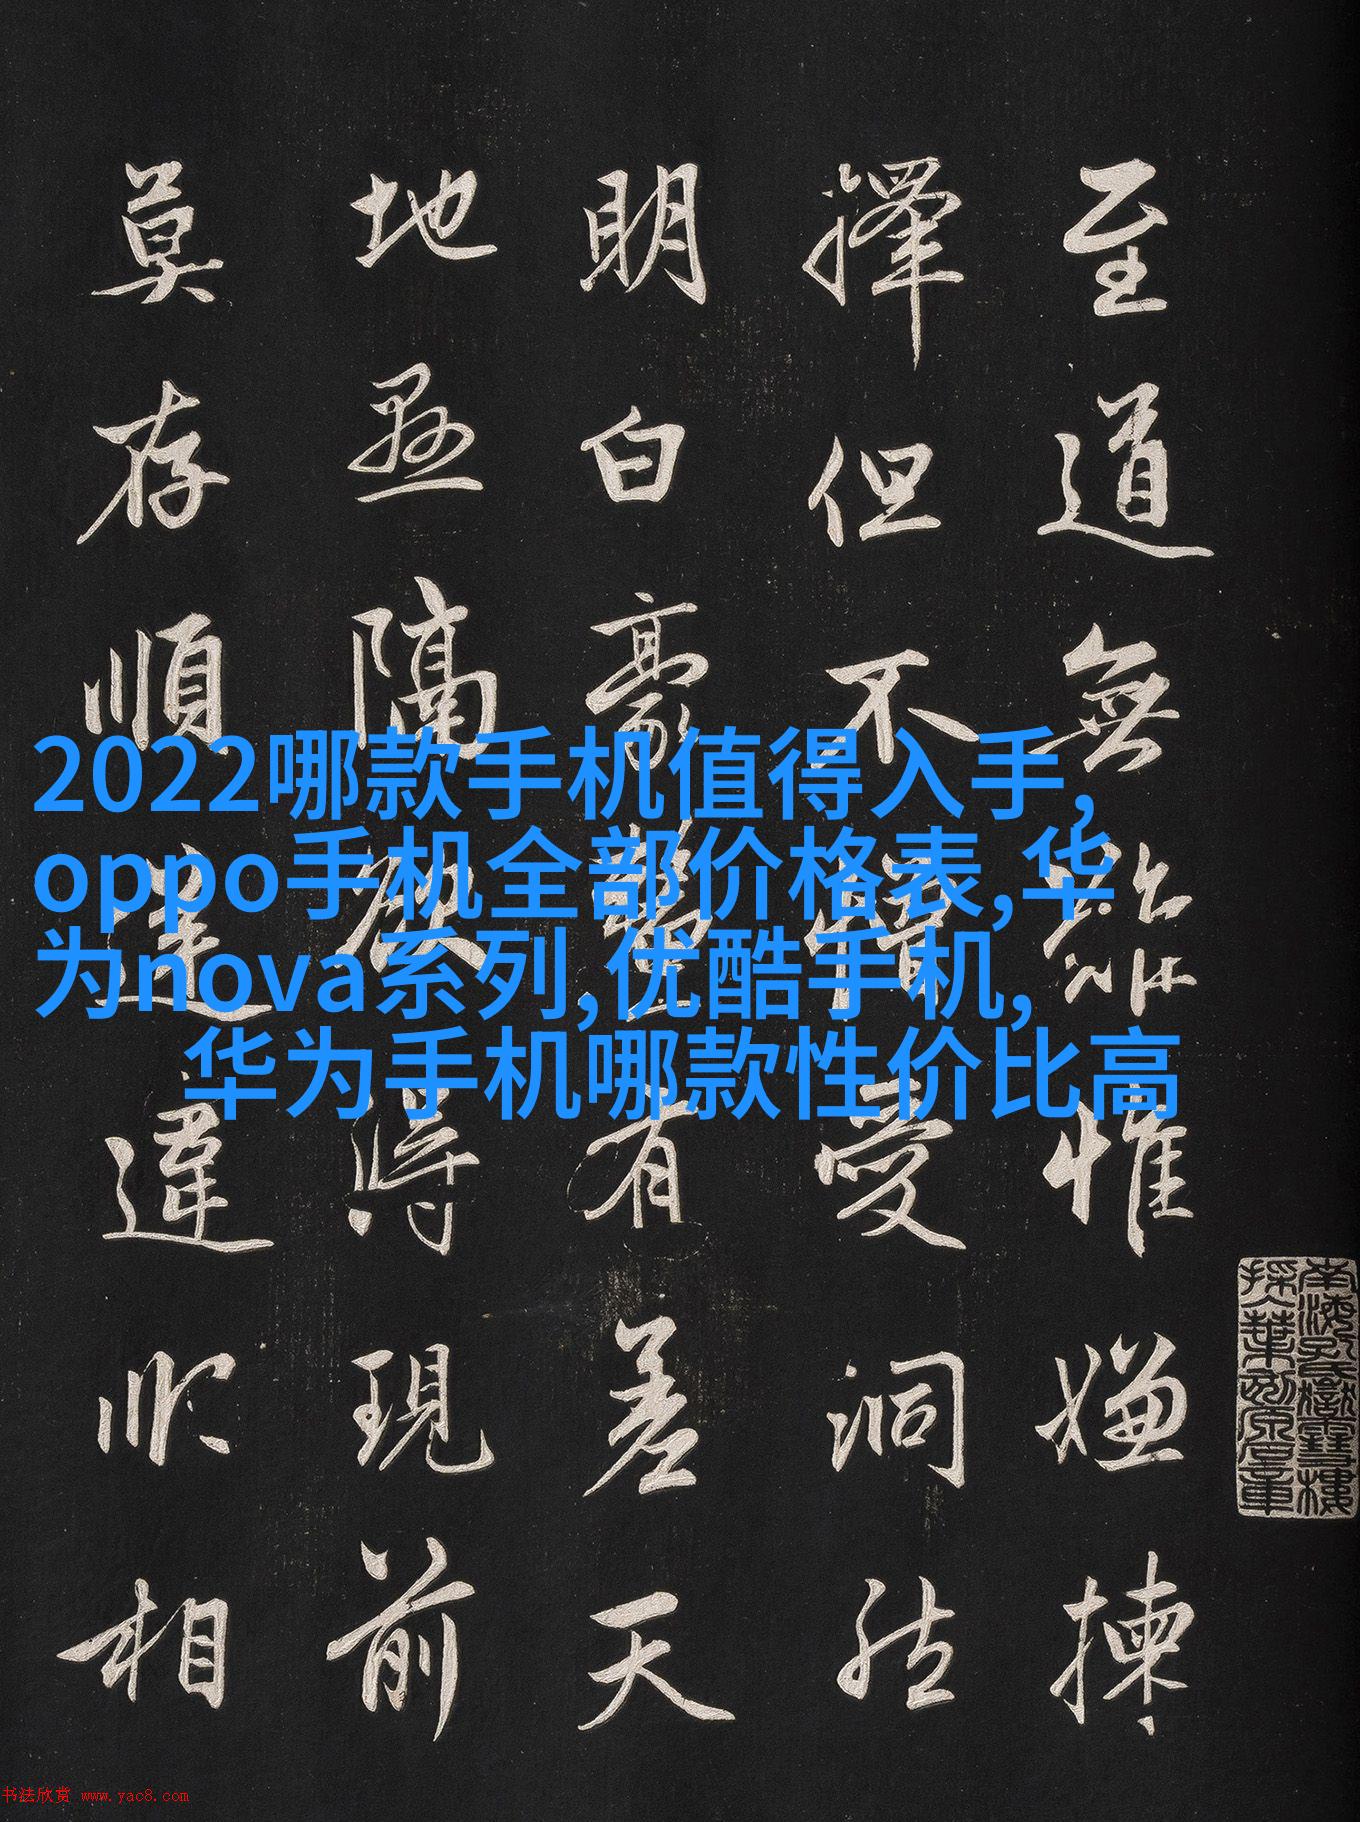 至道無難惟嫌揀
擇但不憎愛洞然
明白豪釐有差天
地懸隔欲得現前
莫存順逆違順相
2022哪款手机值得入手,
oppo手机全部价格表,华
为nova系列,优酷手机,
华为手机哪款性价比高
书法欣赏 www.yac8.com